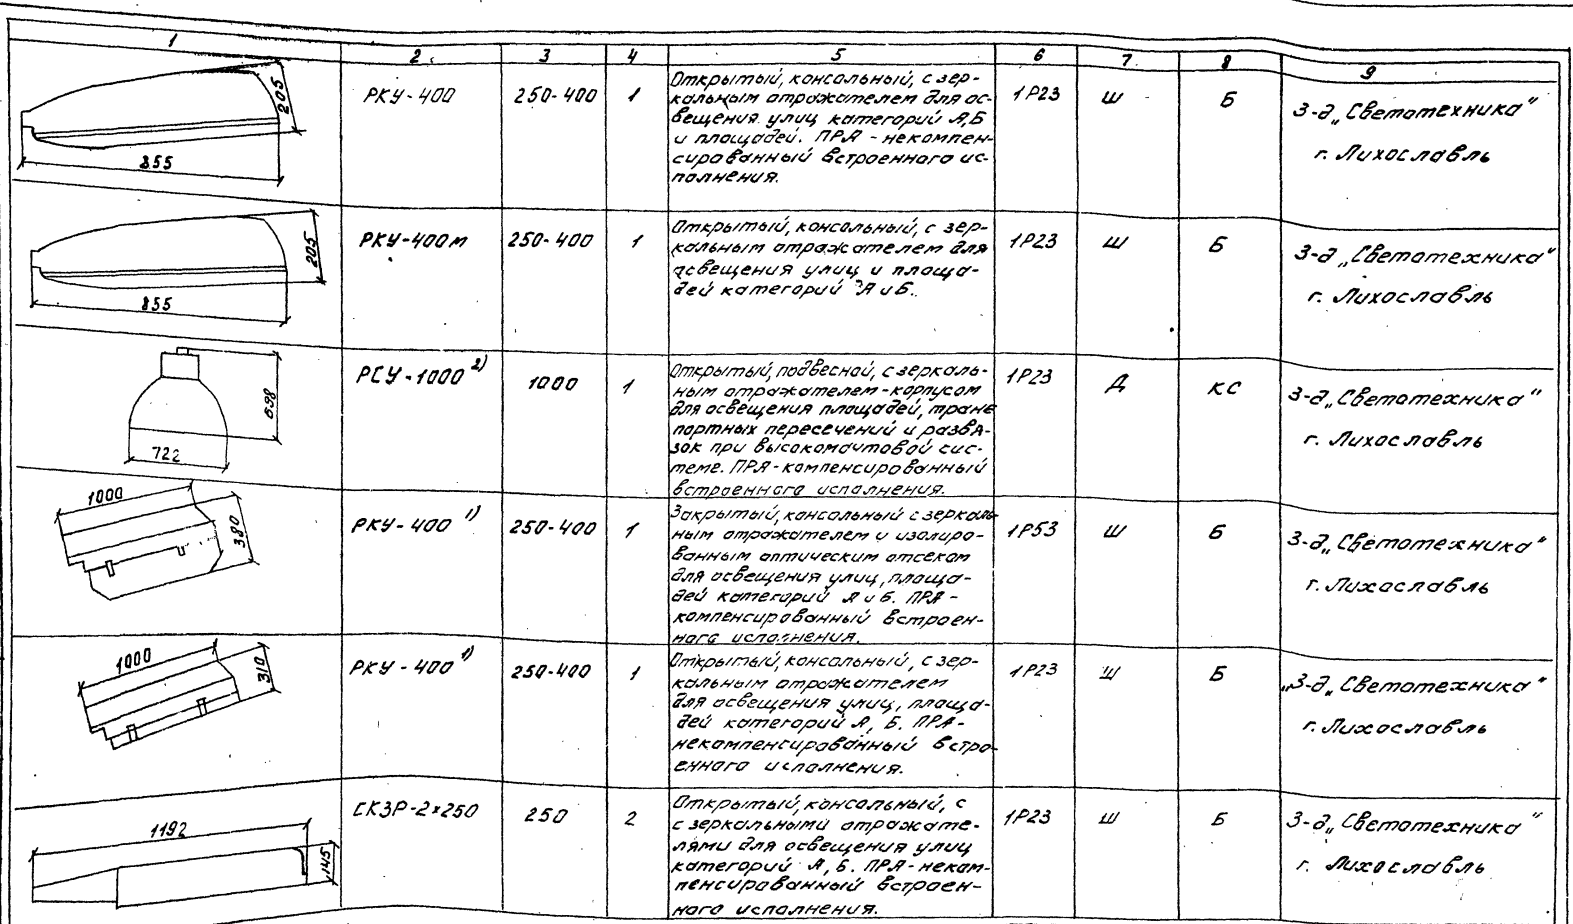 1 2 3 4 5 6 7 8 9
205
855
РКУ-400
250-400
1
Открытый, консольный, с зер-
кальным отражателем для ос-
вещения улиц категорий А,Б
и площадей. ПРА - некомпен-
сированный встроенного ис-
полнения.
1Р23
Ш
Б
З-д „Светотехника"
г. Лихославль
205
855
РКУ-400м
250-400
1
Открытый, консольный, с зер-
кальным отражателем для
освещения улиц и площа-
дей категорий А и Б.
1Р23
Ш
Б
З-д „Светотехника"
г. Лихославль
698
722
РСУ-1000 2)
1000
1
Открытый, подвесной, с зеркаль-
ным отражателем-корпусом
для освещения площадей, транс
портных пересечений и развя-
зок при высокомачтовой сис-
теме. ПРА-компенсированный
встроенного исполнения.
1Р23
Д
КС
З-д „Светотехника"
г. Лихославль
1000
380
РКУ-400 1)
250-400
1
Закрытый, консольный с зеркаль
ным отражателем и изолиро-
ванным оптическим отсеком
для освещения улиц, площа-
дей категорий А и Б. ПРА-
компенсированный встроен-
ного исполнения.
1Р53
Ш
Б
З-д „Светотехника"
г. Лихославль
1000
310
РКУ-400 1)
250-400
1
Открытый, консольный, с зер-
кальным отражателем
для освещения улиц, площа-
дей категорий А, Б. ПРА-
некомпенсированный встро-
енного исполнения.
1Р23
Ш
Б
„З-д „Светотехника"
г. Лихославль
1192
145
СКЗР-2×250
250
2
Открытый, консольный, с
с зеркальными отражате-
лями для освещения улиц
категорий А, Б. ПРА-неком-
пенсированный встроен-
ного исполнения.
1Р23
Ш
Б
З-д „Светотехника"
г. Лихославль